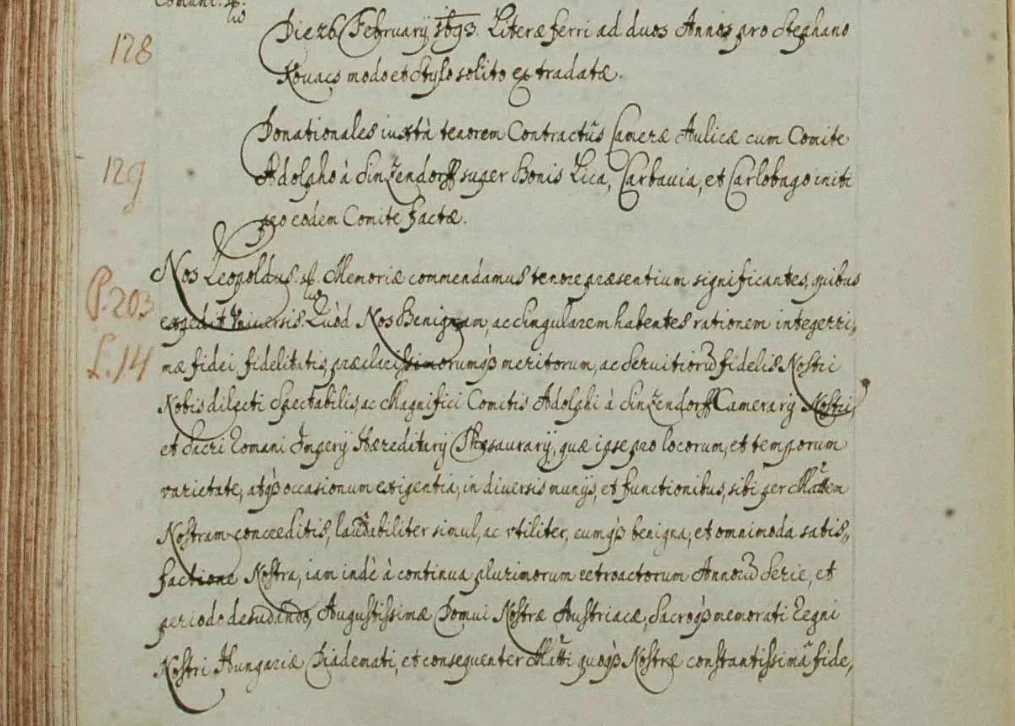 128
Die 26 Februarÿ 1693. Literæ ferri ad duos Annos pro Stephano
Kovacs modo et stylo solito extradatæ.
129
Donationales iuxtà tenorem Contractûs Cameræ Aulicæ cum Comite
Adolpho à Sinzendorff super Bonis Lica, Carbavia, et Carlobago initi
pro eodem Comite factæ.
Nos Leopoldus Memoriæ commendamus tenore præsentium significantes, quibus
P. 203
expedit Universis. Quòd Nos Benignam, ac singularem habentes rationem integerri,
L. 14
mæ fidei, fidelitatis, præclarissimorumq3 meritorum, ac Servitiorũ fidelis Nostri
Nobis dilecti Spectabilis, ac Magnifici Comitis Adolphi à Sinzendorff Camerarÿ Nostri,
et Sacri Romani Imperÿ Hæreditarÿ Thesaurarÿ, quæ ipse pro locorum, et temporum
varietate, atq3 occasionum exigentia, in diversis munÿs, et functionibus, sibi per Mattem
Nostram concreditis, laudabiliter simul, ac vtiliter, cumq3 benigna, et omnimoda satis,,
factione Nostra, iam indè à continua plurimorum retroactorum Annorũ Serie, et
periodo desudando, Augustissimæ Domui Nostræ Austriacæ, Sacroq3 memorati Regni
Nostri Hungariæ Diademati, et consequenter Matti quoq3 Nostræ constantissimâ fide,